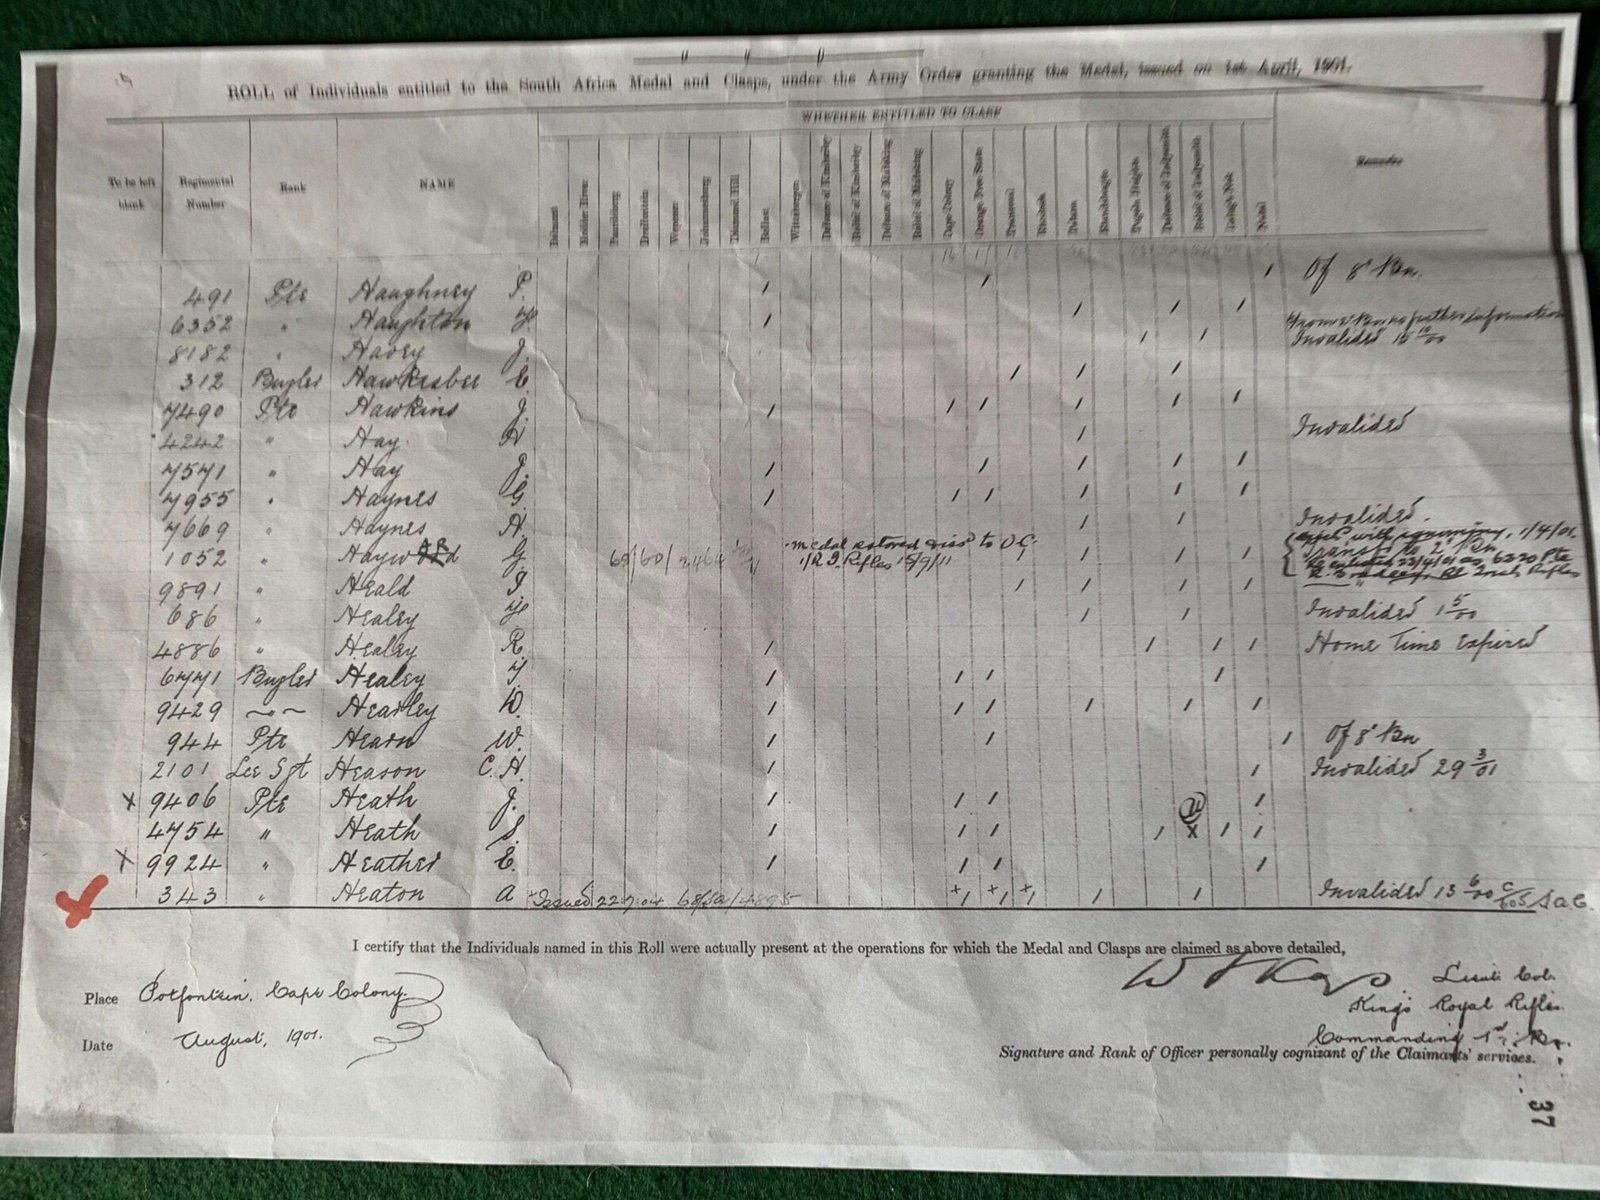 " " "
ROLL of Individuals entitled to the South Africa Medal and Clasps, under the Army Order granting the Medal, issued on 1st April, 1901.
WHETHER ENTITLED TO CLASP
To be left blank Regimental Number Rank NAME Belmont Modder River Paardeberg Driefontein Wepener Johannesburg Diamond Hill Belfast Wittebergen Defence of Kimberley Relief of Kimberley Defence of Mafeking Relief of Mafeking Cape Colony Orange Free State Transvaal Rhodesia Talana Elandslaagte Tugela Heights Defence of Ladysmith Relief of Ladysmith Laing's Nek Natal Remarks
491 Pte Haughney P. / / / Of 8th Bn.
6352 " Haughton / / / /
8182 " Havey J. / / Invalided 15 10/00
312 Bugler Hawkesbee E. / / /
7490 Pte Hawkins J. / / / / / /
4242 " Hay / Invalided
7571 " Hay J. / / / / /
7955 " Haynes G. / / / / / /
7669 " Haynes A. / / Invalided
1052 " Hayward G. medal restored to O.C. 1/R.I. Rifles 1/4/01
9891 " Heald / / / /
686 " Healey / / Invalided 1 5/00
4886 " Healey R. / / / / Home Time Expired
6771 Bugler Healey / / / /
9429 Hearley / / / / / /
944 Pte Hearn W. / / / Of 8th Bn
2101 Lce Sgt Heason C. H. / / Invalided 29 3/01
x 9406 Pte Heath J. / / / /
4754 " Heath S. / / / / x / /
x 9924 " Heather E. / / / /
343 " Heaton A Issued 22.7.04 Invalided 13 6/00 S.A.C.
I certify that the Individuals named in this Roll were actually present at the operations for which the Medal and Clasps are claimed as above detailed,
Lieut Col.
Place Potfontein. Cape Colony.
King's Royal Rifles.
Date August, 1901.
Commanding 1st Bn.
Signature and Rank of Officer personally cognizant of the Claimants' services.
37